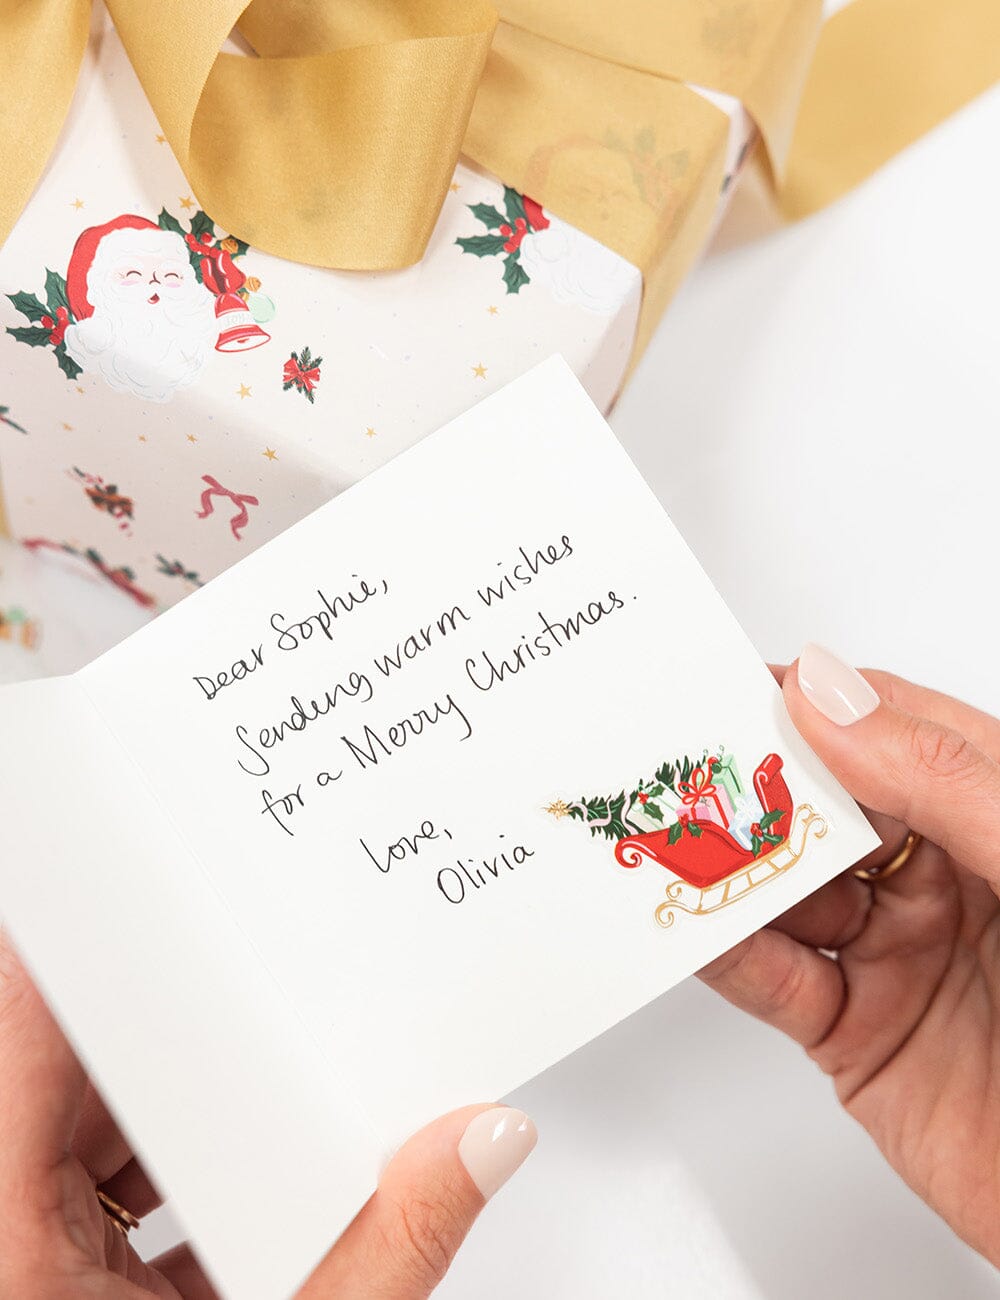 Dear Sophie,
Sending warm wishes
for a Merry Christmas.
Love,
Olivia